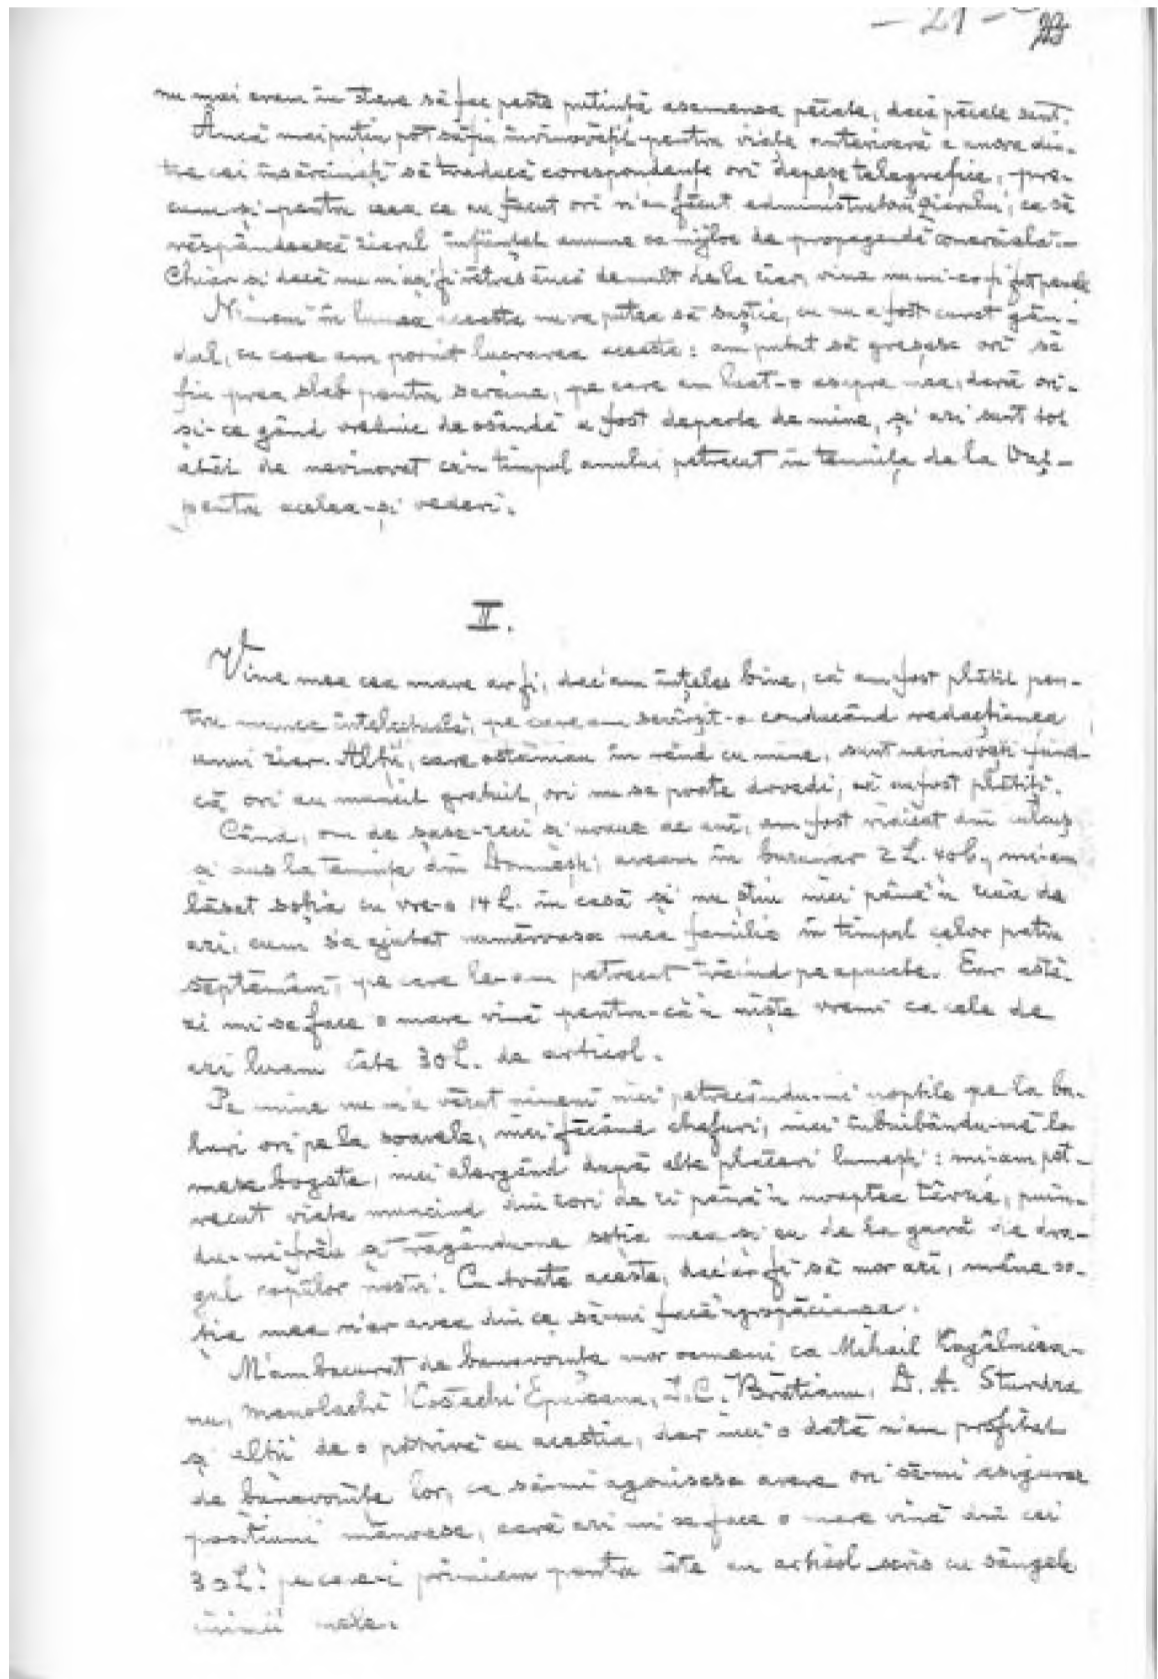 – 21 –
nu mai eram în stare să fac peste putință asemenea păcate, dacă păcate sunt.
Ancă mai puțin pot să fiu învinovățit pentru viața anterioară a unora din-
tre cei însărcinați să traducă corespondențe ori depeșe telegrafice, pre-
cum și pentru ceea ce au făcut ori n'au făcut administratorii ziarului, ca să
răspândească ziarul înființat anume ca mijloc de propagandă comercială.–
Chiar și dacă nu m'aș fi retras âncă demult de la ziar, vina nu mi-ar fi fost
Nimeni în lumea aceasta nu va putea să susție, cu nu a fost curat gân-
dul, cu care am pornit lucrarea aceasta: am putut să greșesc ori să
fiu prea slab pentru sarcina, pe care am luat-o asupra mea, dară ori-
și-ce gând vrednic de osândă a fost departe de mine, și azi sunt tot
atât de nevinovat ca'n timpul anului petrecut în temnița de la Vaț-
pentru acelea-și vederi.
II.
Vina mea cea mare ar fi, dac'am înțeles bine, că am fost plătit pen-
tru munca intelectuală, pe care am săvârșit-o conducând redacțiunea
unui ziar. Alții, care ostăniau în rând cu mine, sunt nevinovați fiind-
că ori au muncit gratuit, ori nu se poate dovedi, că au fost plătiți.
Când, om de șase-zeci și noue de ani, am fost ridicat din culcuș
și dus la temnița din Domnești, aveam în buzunar 2 L. 40 b., mi-am
lăsat soția cu vre-o 14 L. în casă și nu știu nici până'n ziua de
azi, cum s'a ajutat numeroasa mea familie în timpul celor patru
săptămâni, pe care le-am petrecut trăind pe apucate. Ear astă-
zi mi-se face o mare vină pentru-că'n niște vremi ca cele de
azi luam câte 30 L. de articol.
Pe mine nu m'a văzut nimeni nici petrecându-mi nopțile pe la ba-
luri ori pe la soarele, nici făcând chefuri, nici îmbuibându-mă la
mese bogate, nici alergând după alte plăceri lumești: mi-am pet-
recut viața muncind din zori de zi până'n noaptea târzie, puin-
du-mi frâu și răgându-ne soția mea și eu de la gură de dra-
gul copiilor nostri. Cu toate aceste, dac'ar fi să mor azi, mâne so-
ția mea n'ar avea din ce să-mi facă'ngropăciunea.
M'am bucurat de bunăvoința unor oameni ca Mihail Kogălnicea-
nu, Manolachi Costachi Epureanu, I. C. Brătianu, D. A. Sturdza
și alții de o potrivă cu aceștia, dar nici o dată n'am profitat
de bunăvoința lor, ca să-mi agonisesc avere ori să-mi asigurez
pozițiuni mănoase, eară azi mi se face o mare vină din cei
30 L. pe care-i primiem pentru câte un articol scris cu sângele
inimii mele.